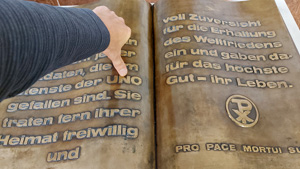 daten, die im
Dienste der UNO
gefallen sind. Sie
traten fern ihrer
Heimat freiwillig
und
voll Zuversicht
für die Erhaltung
des Weltfriedens
ein und gaben da-
für das höchste
Gut = ihr Leben.
PRO PACE MORTUI SU